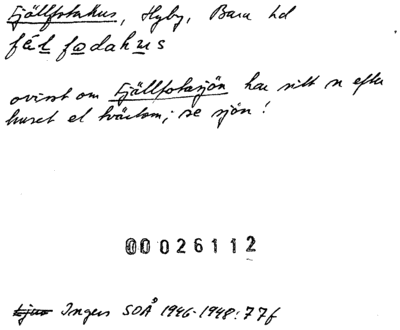 Fjällfotahus, Hyby, Bara hd
fél fodahus
ovisst om Fjällfotasjön har sitt n efter
huset el tvärtom; se sjön!
00026112
Ingers SOÅ 1946-1948:77f